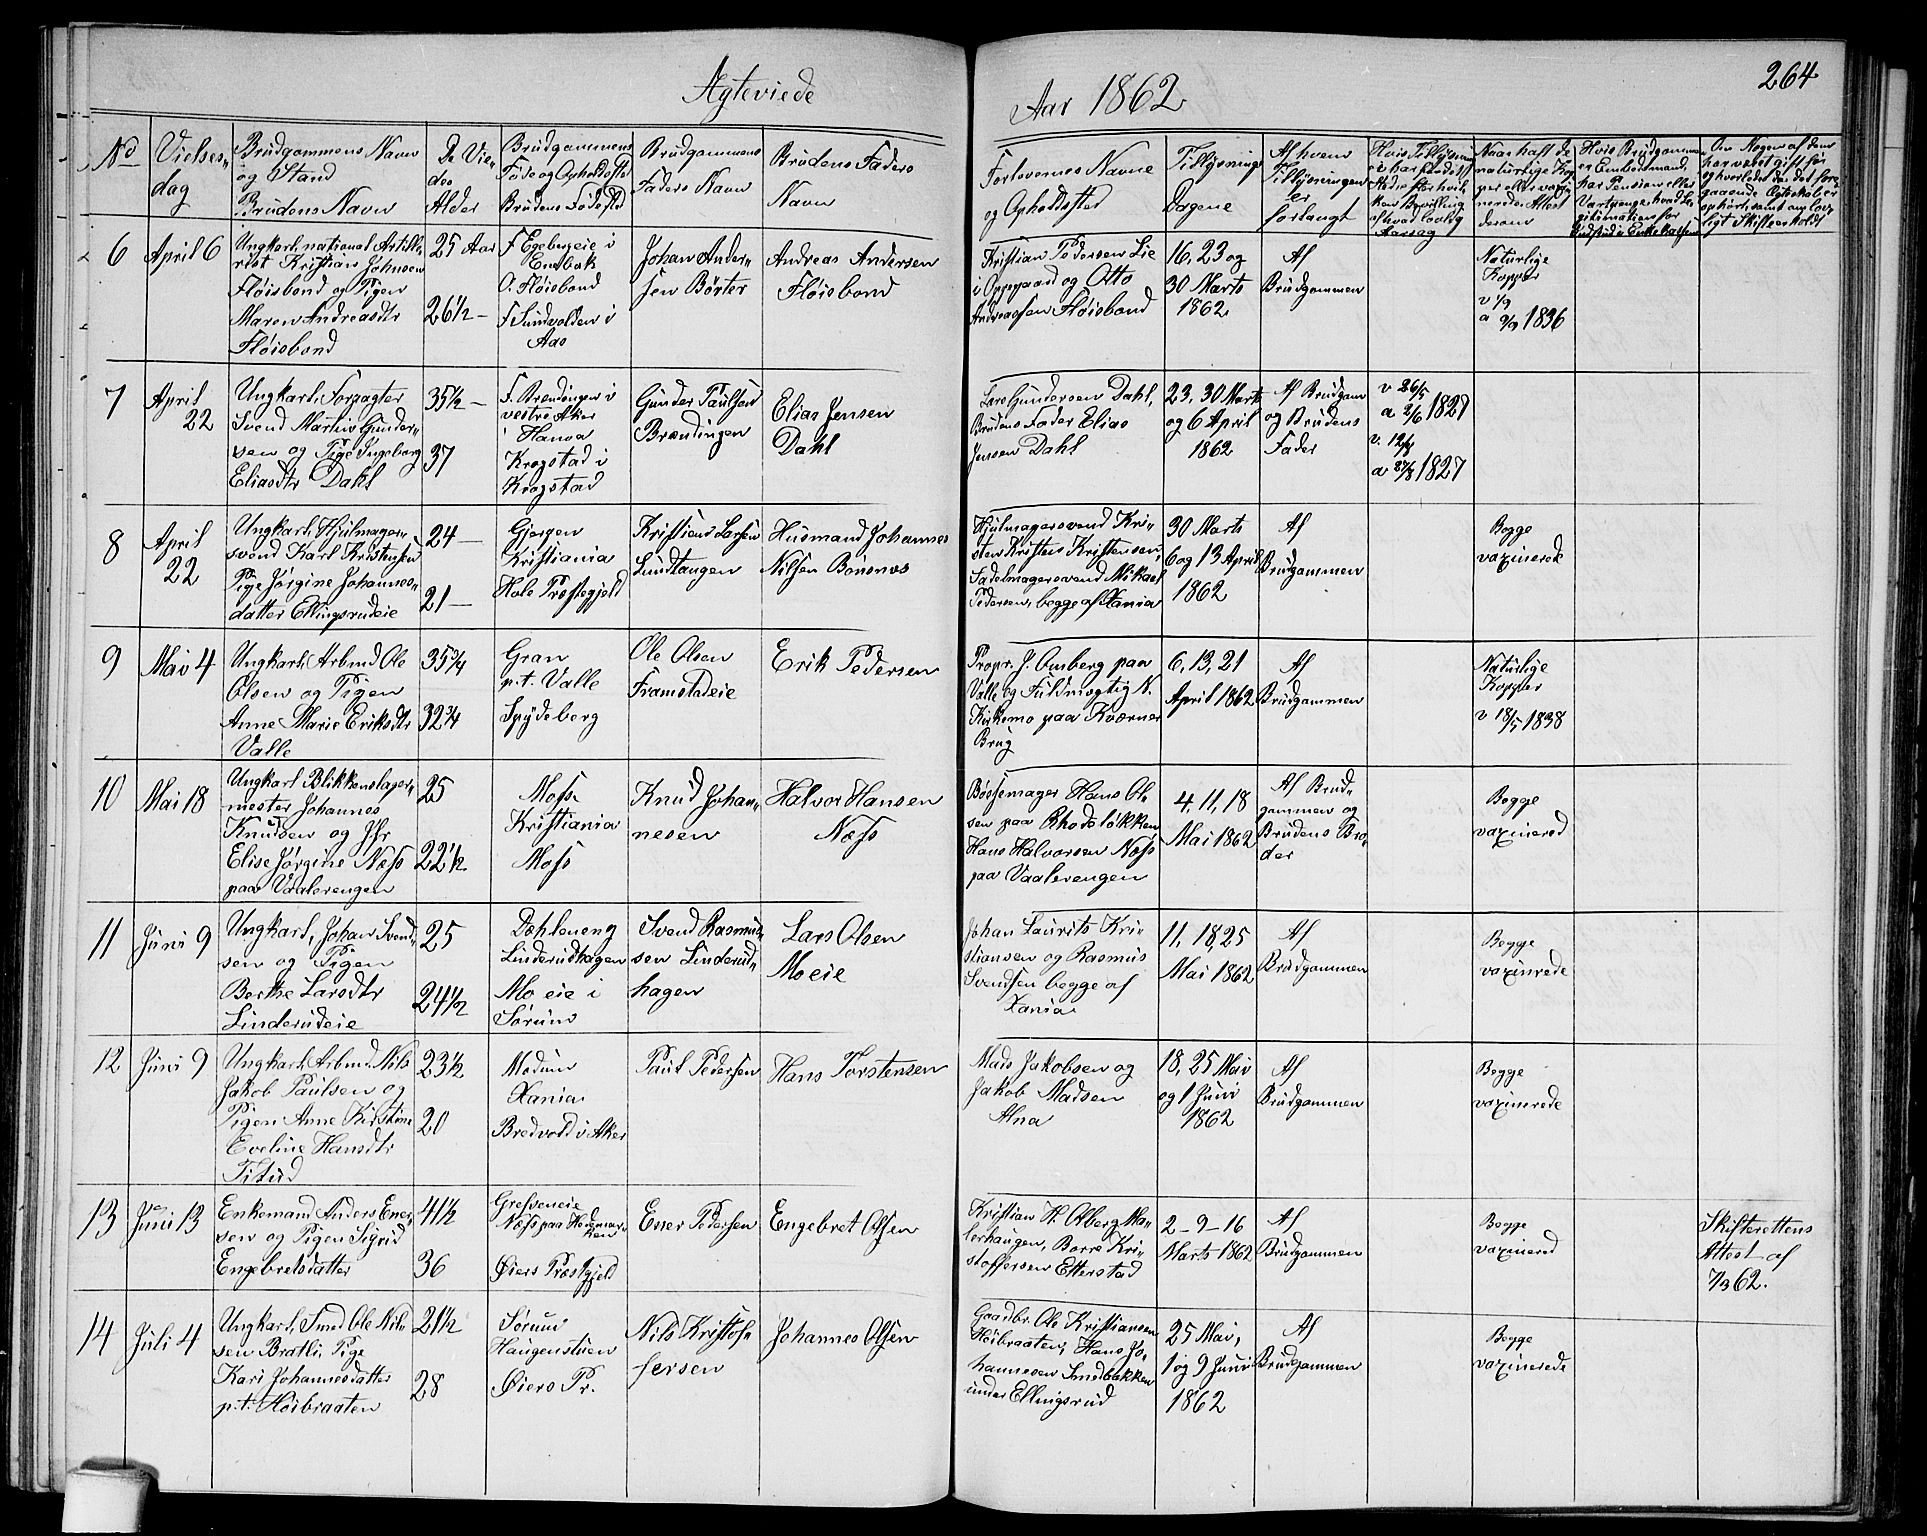 Ægteviede
Aar 1862
264
No
Vielses-
dag
Brudgommens Navn
og Stand
Brudens Navn
De Vie-
des
Alder
Brudgommens
Føde og Opholdsted
Brudens Fødested
Brudgommens
Faders Navn
Brudens Faders
Navn
Forlovernes Navne
og Opholdsted
Tillysnings
Dagene
Af hvem
Tillysningen
er
forlangt
Naar haft de
naturlige Kop-
per eller vaxi-
nerede. Attest
derom
Hvis Brudgommen
er Embedsmand,
har Pension eller
Vartpenge, hvad Le-
gitimation for
Indskud i Enkekassen
Om Nogen af dem
har været gift før
og hvorledes da det fore-
gaaende Ægteskab er
ophørt, samt om lov-
ligt Skifte er holdt
6
April 6
Ungkarl, national Artille-
rist Kristian Johnsen
Fløisbond og Pigen
Maren Andreasdtr
Fløisbond
25 Aar
26½ —
F Egebergeie i
Enebak
O. Fløisbond
F Sundvolden i
Aas
Johan Ander-
sen Børter
Andreas Andersen
Fløisbond
Kristian Pedersen Lie
i Oppgaard og Otto
Andreassen Fløisbond
16, 23 og
30 Marts
1862
Af
Brudgommen
Naturlige
Kopper
v 1/9
a 9/9 1836
7
April
22
Ungkarl, Forpagter
Svend Martin Gunder-
sen og Pige Ingeborg
Eliasdtr Dahl
35½ —
37
F. Brendingen i
vestre Aker
Hansa
Krogstad i
Krogstad
Gunder Paulsen
Brændingen
Elias Jensen
Dahl
Lars Gundersen Dahl,
Brudens Fader Elias
Jensen Dahl
23, 30 Marts
og 6 April
1862
Af Brudgom
og Brudens
Fader
v 26/5
a 2/6 1827
v. 12/8
a 27/8 1827
8
April
22
Ungkarl, Hjulmager-
svend Karl Kristensen
Pige Jørgine Johannes-
datter Ellingsrudeie
24 —
21 —
Gjørgen
Kristiania
Hole Præstegjeld
Kristian Larsen
Lundtangen
Husmand Johannes
Nilsen Bønsnæs
Hjulmagersvend Kri-
sten Kristens Kristensen,
Sadelmagersvend Mikael
Pedersen, begge af Xania
30 Marts
6 og 13 April
1862
Af
Brudgommen
Begge
vaxinerede
9
Mai 4
Ungkarl, Arbmd Ole
Olsen og Pigen
Anne Marie Eriksdtr
Valle
35¾
32¾
Gran
p.t. Valle
Spydeberg
Ole Olsen
Framstadeie
Erik Pedersen
Propr. J. Omberg paa
Valle og Fuldmægtig N.
Kirkemo paa Kværner
Brug
6, 13, 21
April 1862
Af
Brudgommen
Naturlige
Kopper
v 18/5 1838
10
Mai 18
Ungkarl Blikkenslager-
mester Johannes
Knudsen og Jfr
Elise Jørgine Næss
paa Vaalerengen
25
22½
Moss
Kristiania
Moss
Knud Johan-
nesen
Halvor Hansen
Næss
Bøssemager Hans Ol-
sen paa Rhodeløkken
Hans Halvorsen Næss
paa Vaalerengen
4, 11, 18
Mai 1862
Af Brud-
gommen og
Brudens Bro-
der
Begge
vaxinered
11
Juni 9
Ungkarl, Johan Svend-
sen og Pigen
Berthe Larsdtr
Linderudeie
25
24½
Dæhleneng
Linderudhagen
Mo eie i
Sørum
Svend Rasmus-
sen Linderud-
hagen
Lars Olsen
Moeie
Johan Laurits Kri-
stiansen og Rasmus
Svendsen begge af
Xania
11, 18, 25
Mai 1862
Af
Brudgommen
Begge
vaxinrede
12
Juni 9
Ungkarl, Arbmd. Nils
Jakob Paulsen og
Pigen Anne Kirstine
Eveline Hansdtr
Tisud
23½
20
Modum
Xania
Bredvold i Aker
Paul Pedersen
Hans Torstensen
Mads Jakobsen og
Jakob Madsen
Alna
18, 25 Mai
og 1 Juni
1862
Af
Brudgommen
Begge
vaxinerede
13
Juni 13
Enkemand Anders Ener-
sen og Pigen Sigrid
Engebretsdatter
41½
36
Grefseneie
Næss paa Hedemar-
ken
Øiers Præstgjeld
Ener Pedersen
Engebret Olsen
Kristian H. Olberg Ma-
lerhaugen, Borre Kri-
stoffersen Etterstad
2 – 9 – 16
Marts 1862
Af
Brudgommen
Begge
vaxinered
Skifterettens
Attest af
7/3 62.
14
Juli 4
Ungkarl, Smed Ole Nil-
sen Bratli, Pige
Kari Johannesdatter
p.t. Høibraaten
21½
28
Sørum
Haugenstuen
Øiers Pr.
Nils Kristof-
fersen
Johannes Olsen
Gaardbr. Ole Kristiansen
Høibraaten, Hans Jo-
hannesen Smedbakken
under Ellingsrud
25 Mai,
1 og 9 Juni
1862
Af
Brudgommen
Begge
vaxinerede